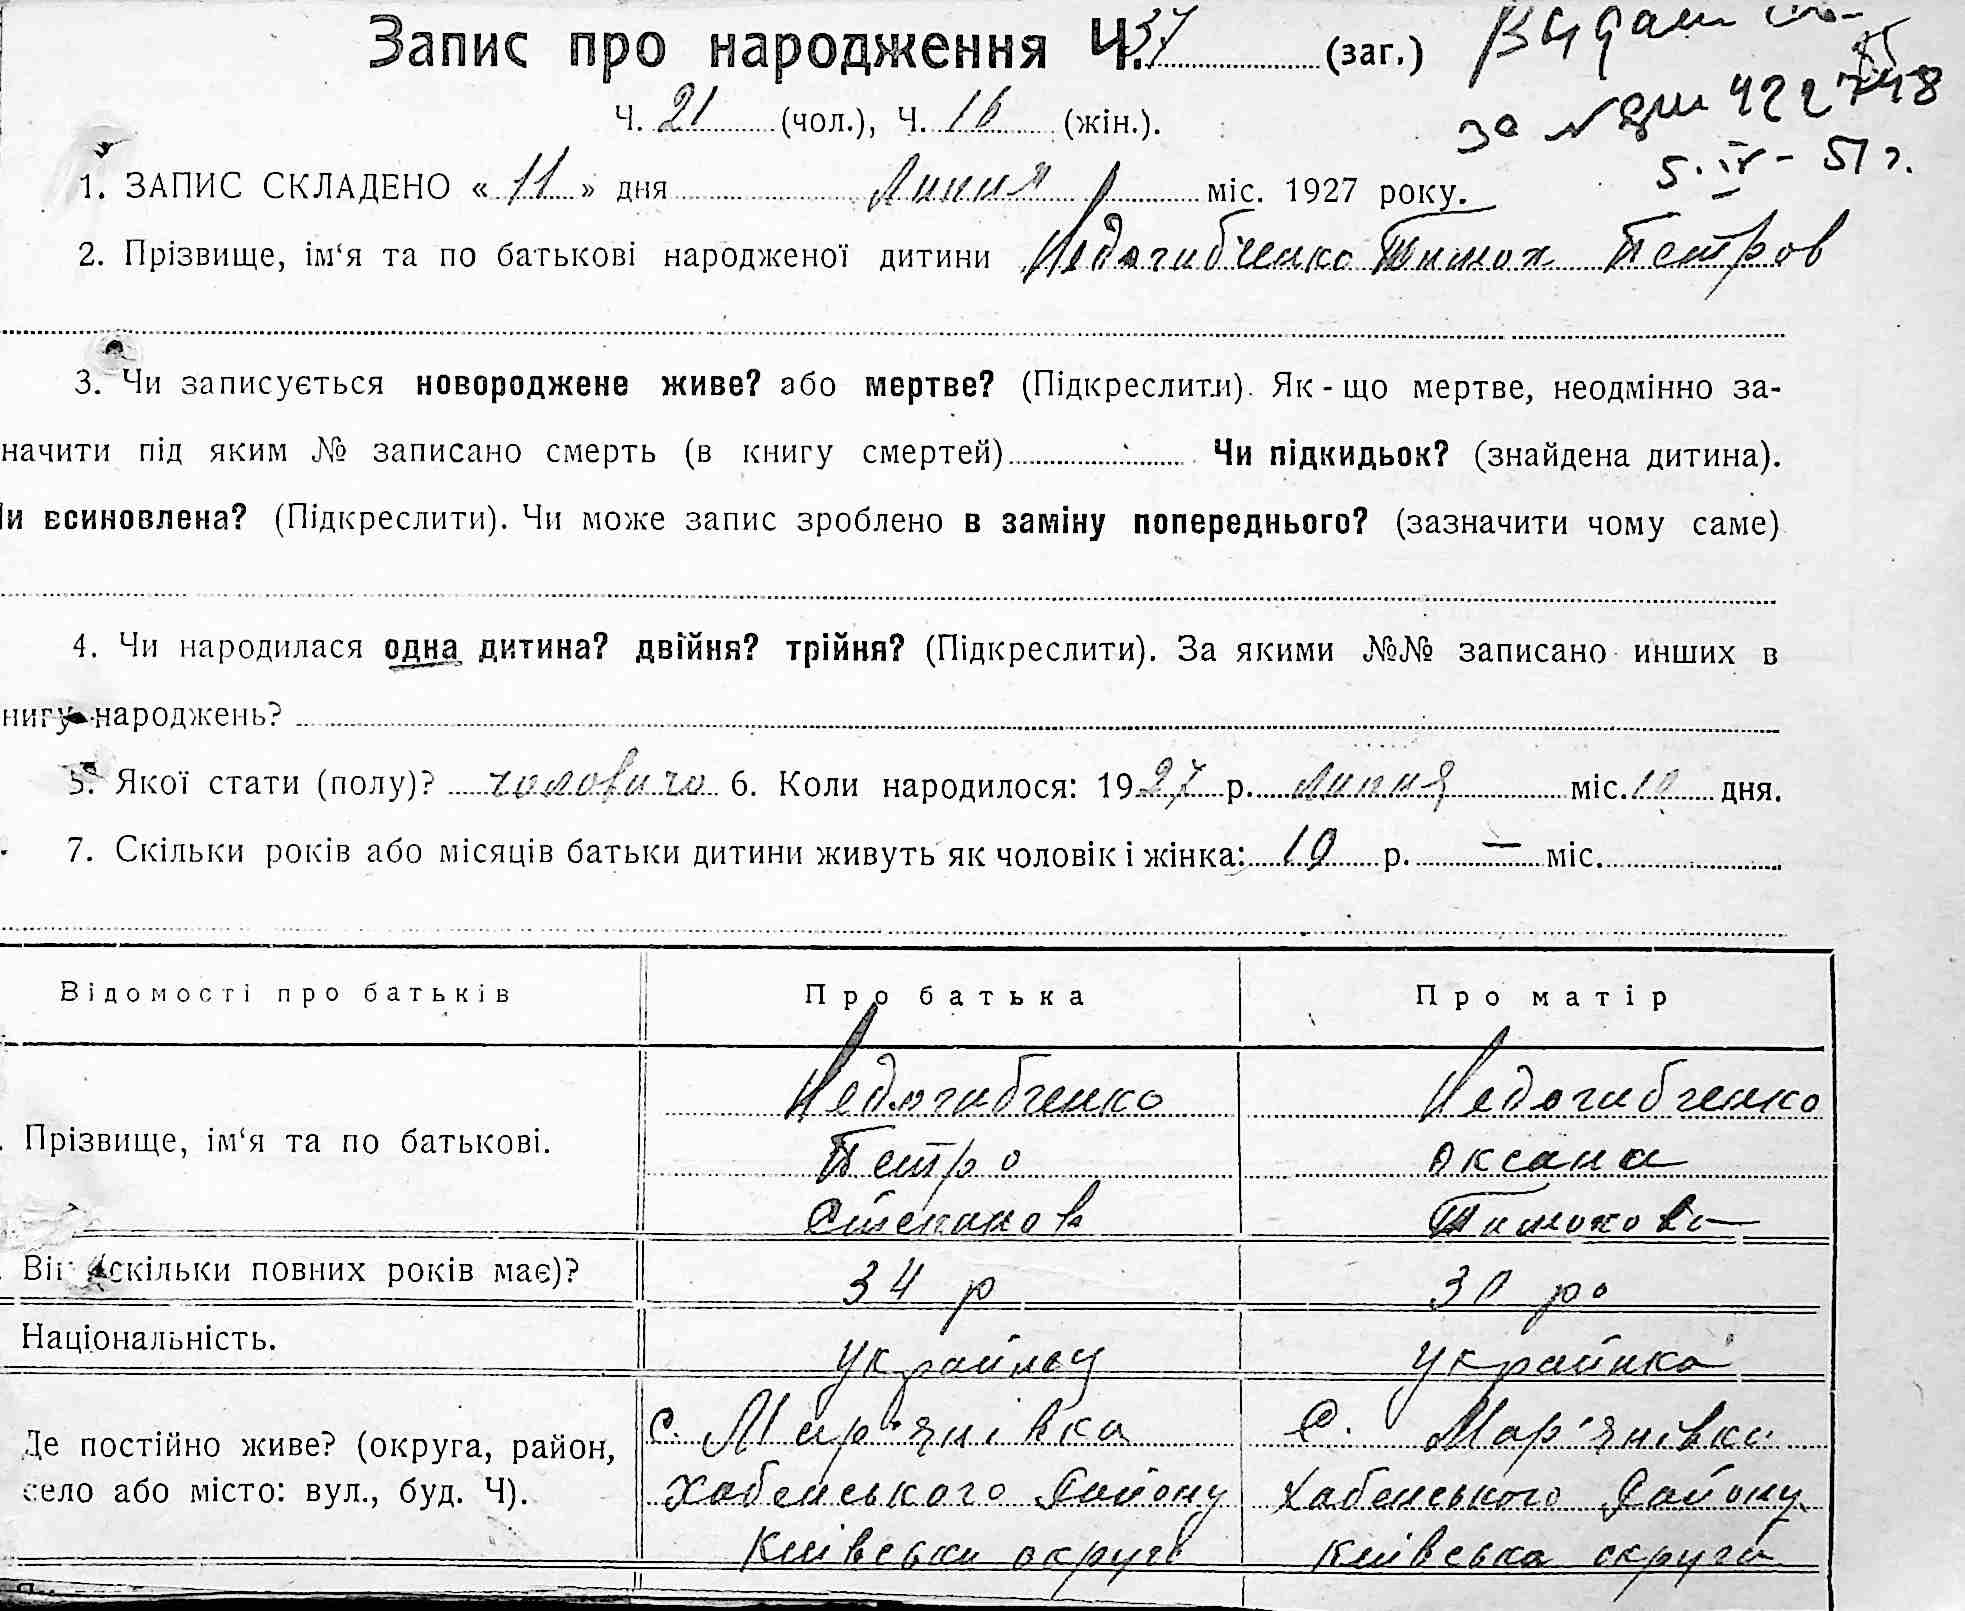 Запис про народження Ч. 37 (заг.)
Ч. 21 (чол.), Ч. 16 (жін.).
за № 422748
5. IV - 51 г.
1. ЗАПИС СКЛАДЕНО « 11 » дня липня міс. 1927 року.
2. Прізвище, ім‘я та по батькові народженої дитини Недогибченко Тимох Петров
3. Чи записується новороджене живе? або мертве? (Підкреслити). Як-що мертве, неодмінно за-
начити під яким № записано смерть (в книгу смертей) Чи підкидьок? (знайдена дитина).
и всиновлена? (Підкреслити). Чи може запис зроблено в заміну попереднього? (зазначити чому саме)
4. Чи народилася одна дитина? двійня? трійня? (Підкреслити). За якими №№ записано инших в
нигу народжень?
5. Якої стати (полу)? чоловічо 6. Коли народилося: 1927 р. липня міс. 10 дня.
7. Скільки років або місяців батьки дитини живуть як чоловік і жінка: 10 р. — міс.
Відомості про батьків Про батька Про матір
Недогибченко Недогибченко
Прізвище, ім‘я та по батькові. Петро Оксана
Степанов Тимохова
Вік (скільки повних років має)? 34 р 30 ро
Національність. українец українка
Де постійно живе? (округа, район, с. Мар'янівка с. Мар'янівка
село або місто: вул., буд. Ч). Хабенського Району Хабенського Району
Київська округа Київська округа